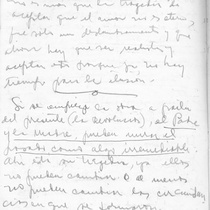 que el amor no es eterno,
que sólo un deslumbramiento y que
ahora hay que ser realista y
aceptar esto porque ya no hay
tiempo para la ilusión.
Si se empieza la obra a partir
del presente (la devolución), el Padre
y la madre pueden mirar el
pasado como algo irremediable.
Ahí está su tragedia, ya ellos
no pueden cambiar o al menos
no pueden cambiar las circunstan
cias en que se formaron.